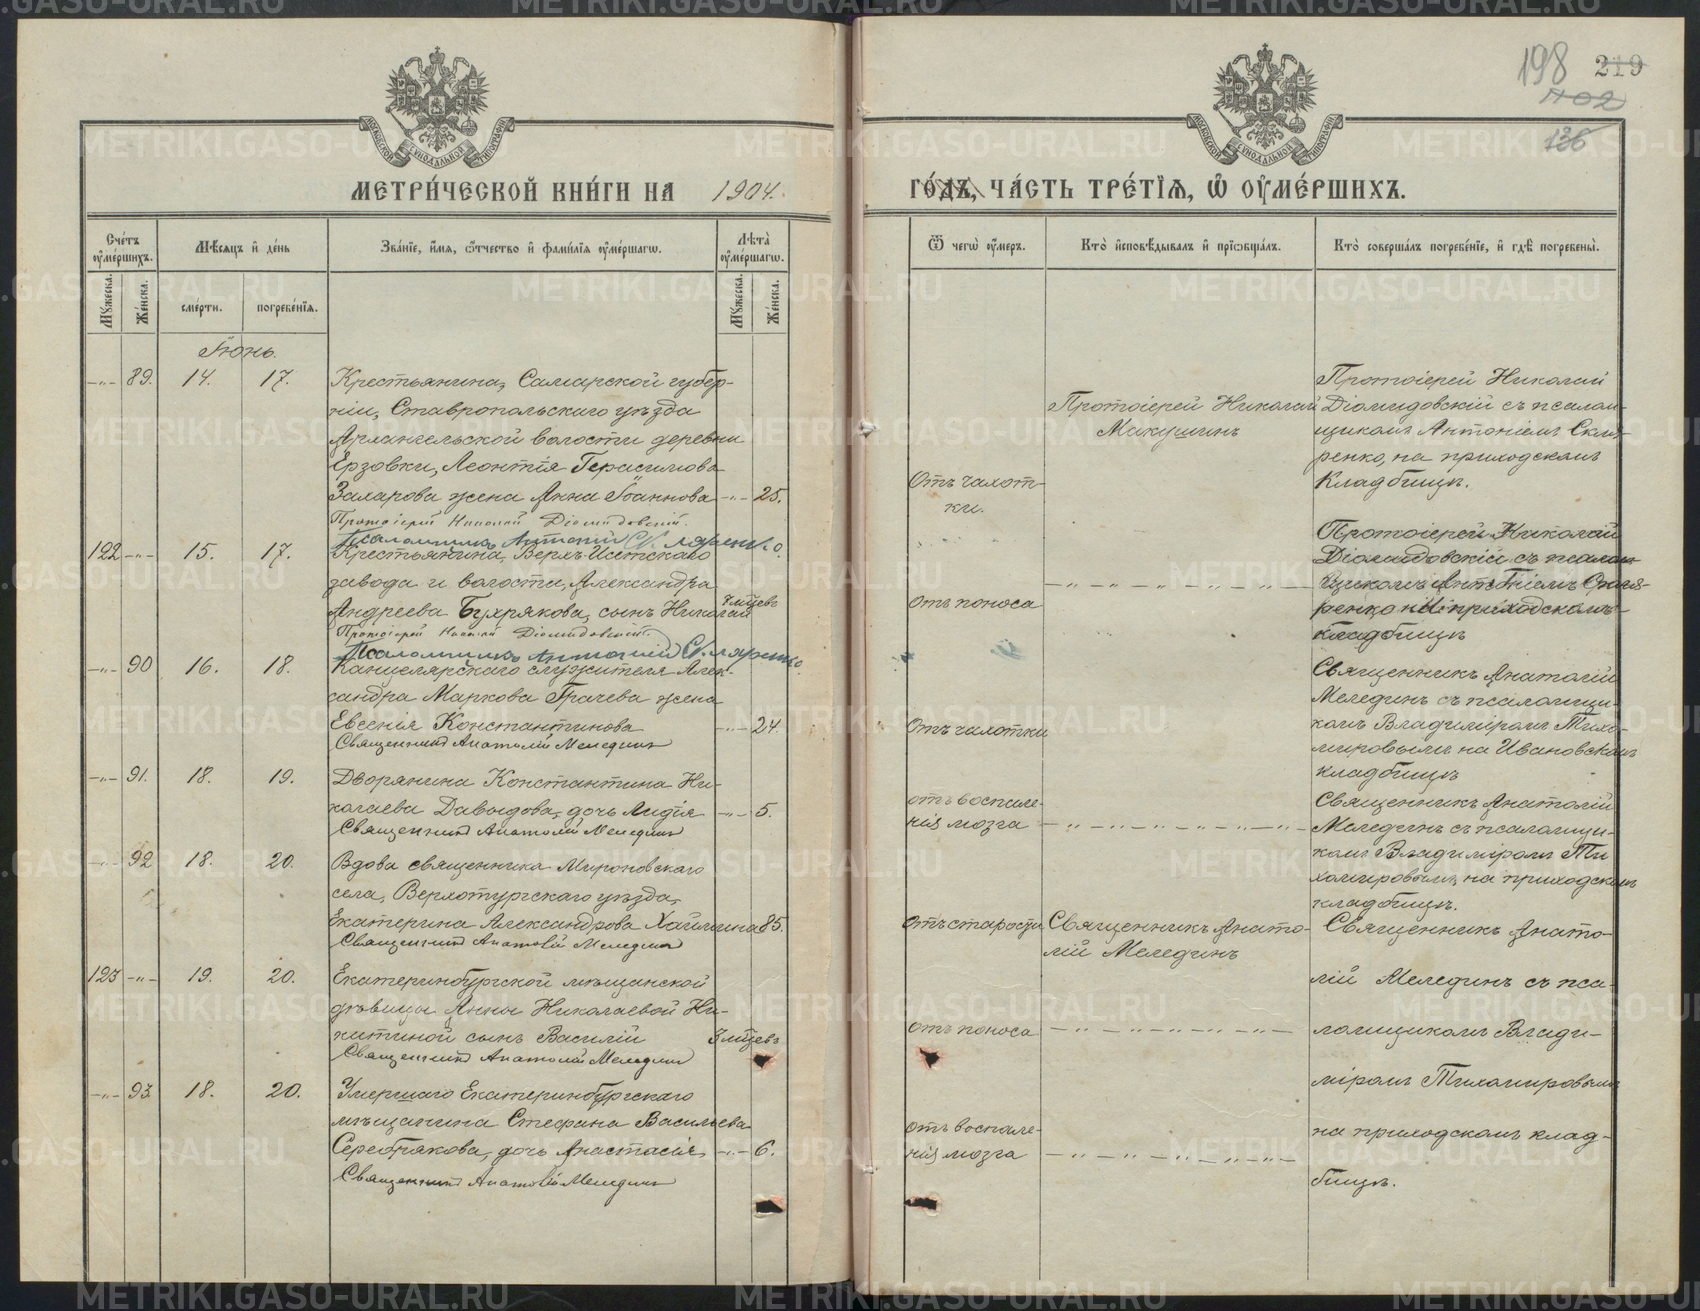 198 219
1102
126
МОСКОВСКОЙ СѴНОДАЛЬНОЙ ТИПОГРАФІИ
МОСКОВСКОЙ СѴНОДАЛЬНОЙ ТИПОГРАФІИ
МЕТРИ́ЧЕСКОЙ КНИ́ГИ НА 1904.
ГО́ДЪ, ЧА́СТЬ ТРЕ́ТЇѦ, Ѡ ОУМЕ́РШИХЪ.
Сче́тъ оуме́ршихъ.
Мѣсяцъ и де́нь
Зва́нїе, и́мя, ѻтчество и фами́лїя оуме́ршагѡ.
Лѣта̀ оуме́ршагѡ.
Ѿ чегѡ̀ оу́меръ.
Кто̀ исповѣ́дывалъ и прїѡбща́лъ.
Кто̀ соверша́лъ погребе́нїе, и гдѣ̀ погребены̀.
Мꙋжеска.
Же́нска.
сме́рти.
погребе́нїя.
Мꙋжеска.
Же́нска.
Іюнь.
-"- 89. 14. 17.
Крестьянина, Самарской губер-
ніи, Ставропольскаго уѣзда
Архангельской волости деревни
Ерзовки, Леонтія Герасимова
Захарова жена Анна Іоаннова -"- 25.
Протоіерей Николай Діомидовскій.
Псаломщикъ Антоній Скляренко.
Отъ чахот-
ки.
Протоіерей Николай
Макушинъ
Протоіерей Николай
Діомидовскій съ псалом-
щикомъ Антоніемъ Скля-
ренко, на приходскомъ
кладбищѣ.
122 -"- 15. 17.
Крестьянина, Верхъ-Исетскаго
завода и волости, Александра
Андреева Бухрякова, сынъ Николай
мѣсцевъ
Протоіерей Николай Діомидовскій.
Псаломщикъ Антоній Скляренко.
отъ поноса
-"-"-"-"-"-
Протоіерей Николай
Діомидовскій съ псалом-
щикомъ Антоніемъ Скля-
ренко на приходскомъ
кладбищѣ
-"- 90 16. 18.
Канцелярскаго служителя Алек-
сандра Маркова Грачева жена
Евгенія Константинова -"- 24.
Священникъ Анатолій Меледин
Отъ чахотки
Священникъ Анатолій
Меледин съ псаломщи-
комъ Владиміромъ Тихо-
мировымъ на Ивановскомъ
кладбищѣ
-"- 91. 18. 19.
Дворянина Константина Ни-
колаева Давыдова, дочь Лидія -"- 5.
Священникъ Анатолій Меледин
отъ воспале-
нія мозга -"-"-"-"-"-
Священникъ Анатолій
Мелединъ съ псаломщи-
комъ Владиміромъ Ти
хомировымъ, на приходскомъ
кладбищѣ.
-"- 92 18. 20.
Вдова священника Мироновскаго
села, Верхотурскаго уѣзда,
Екатерина Александрова 85.
Священникъ Анатолій Меледин
Отъ старости
Священникъ Анато-
лій Мелединъ
Священникъ Анато-
лій Мелединъ съ пса-
ломщикомъ Влади-
міромъ Тихомировымъ
на приходскомъ клад-
бищѣ.
123 -"- 19. 20.
Екатеринбургской мѣщанской
дѣвицы Анны Николаевой Ни-
китиной сынъ Василій 3 мѣсцевъ
Священникъ Анатолій Меледин
отъ поноса -"-"-"-"-"-
-"- 93 18. 20.
Умершаго Екатеринбургскаго
мѣщанина Стефана Васильева
Серебрякова, дочь Анастасія -"- 6.
Священникъ Анатолій Меледин
отъ воспале-
нія мозга -"-"-"-"-"-
METRIKI.GASO-URAL.RU